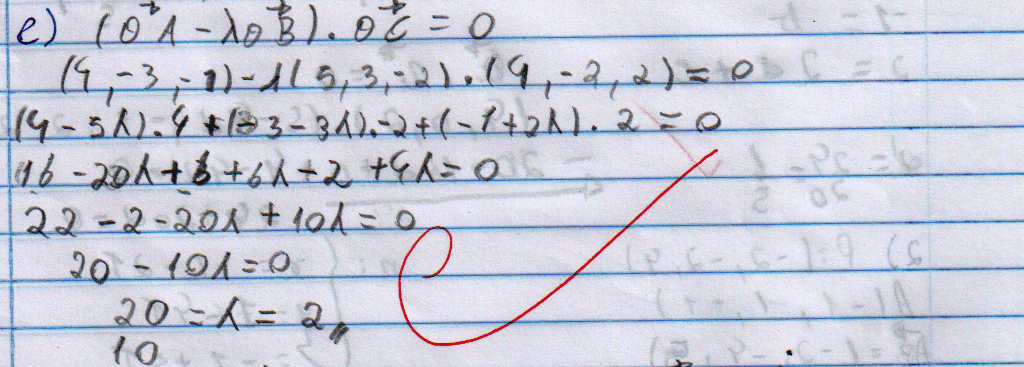 e) (OA - λOB). OC = 0
(4, -3, -1) - λ(5, 3, -2). (4, -2, 2) = 0
(4 - 5λ). 4 + (-3 - 3λ). -2 + (-1 + 2λ). 2 = 0
16 - 20λ + 6 + 6λ - 2 + 4λ = 0
22 - 2 - 20λ + 10λ = 0
20 - 10λ = 0
20 = λ = 2
10